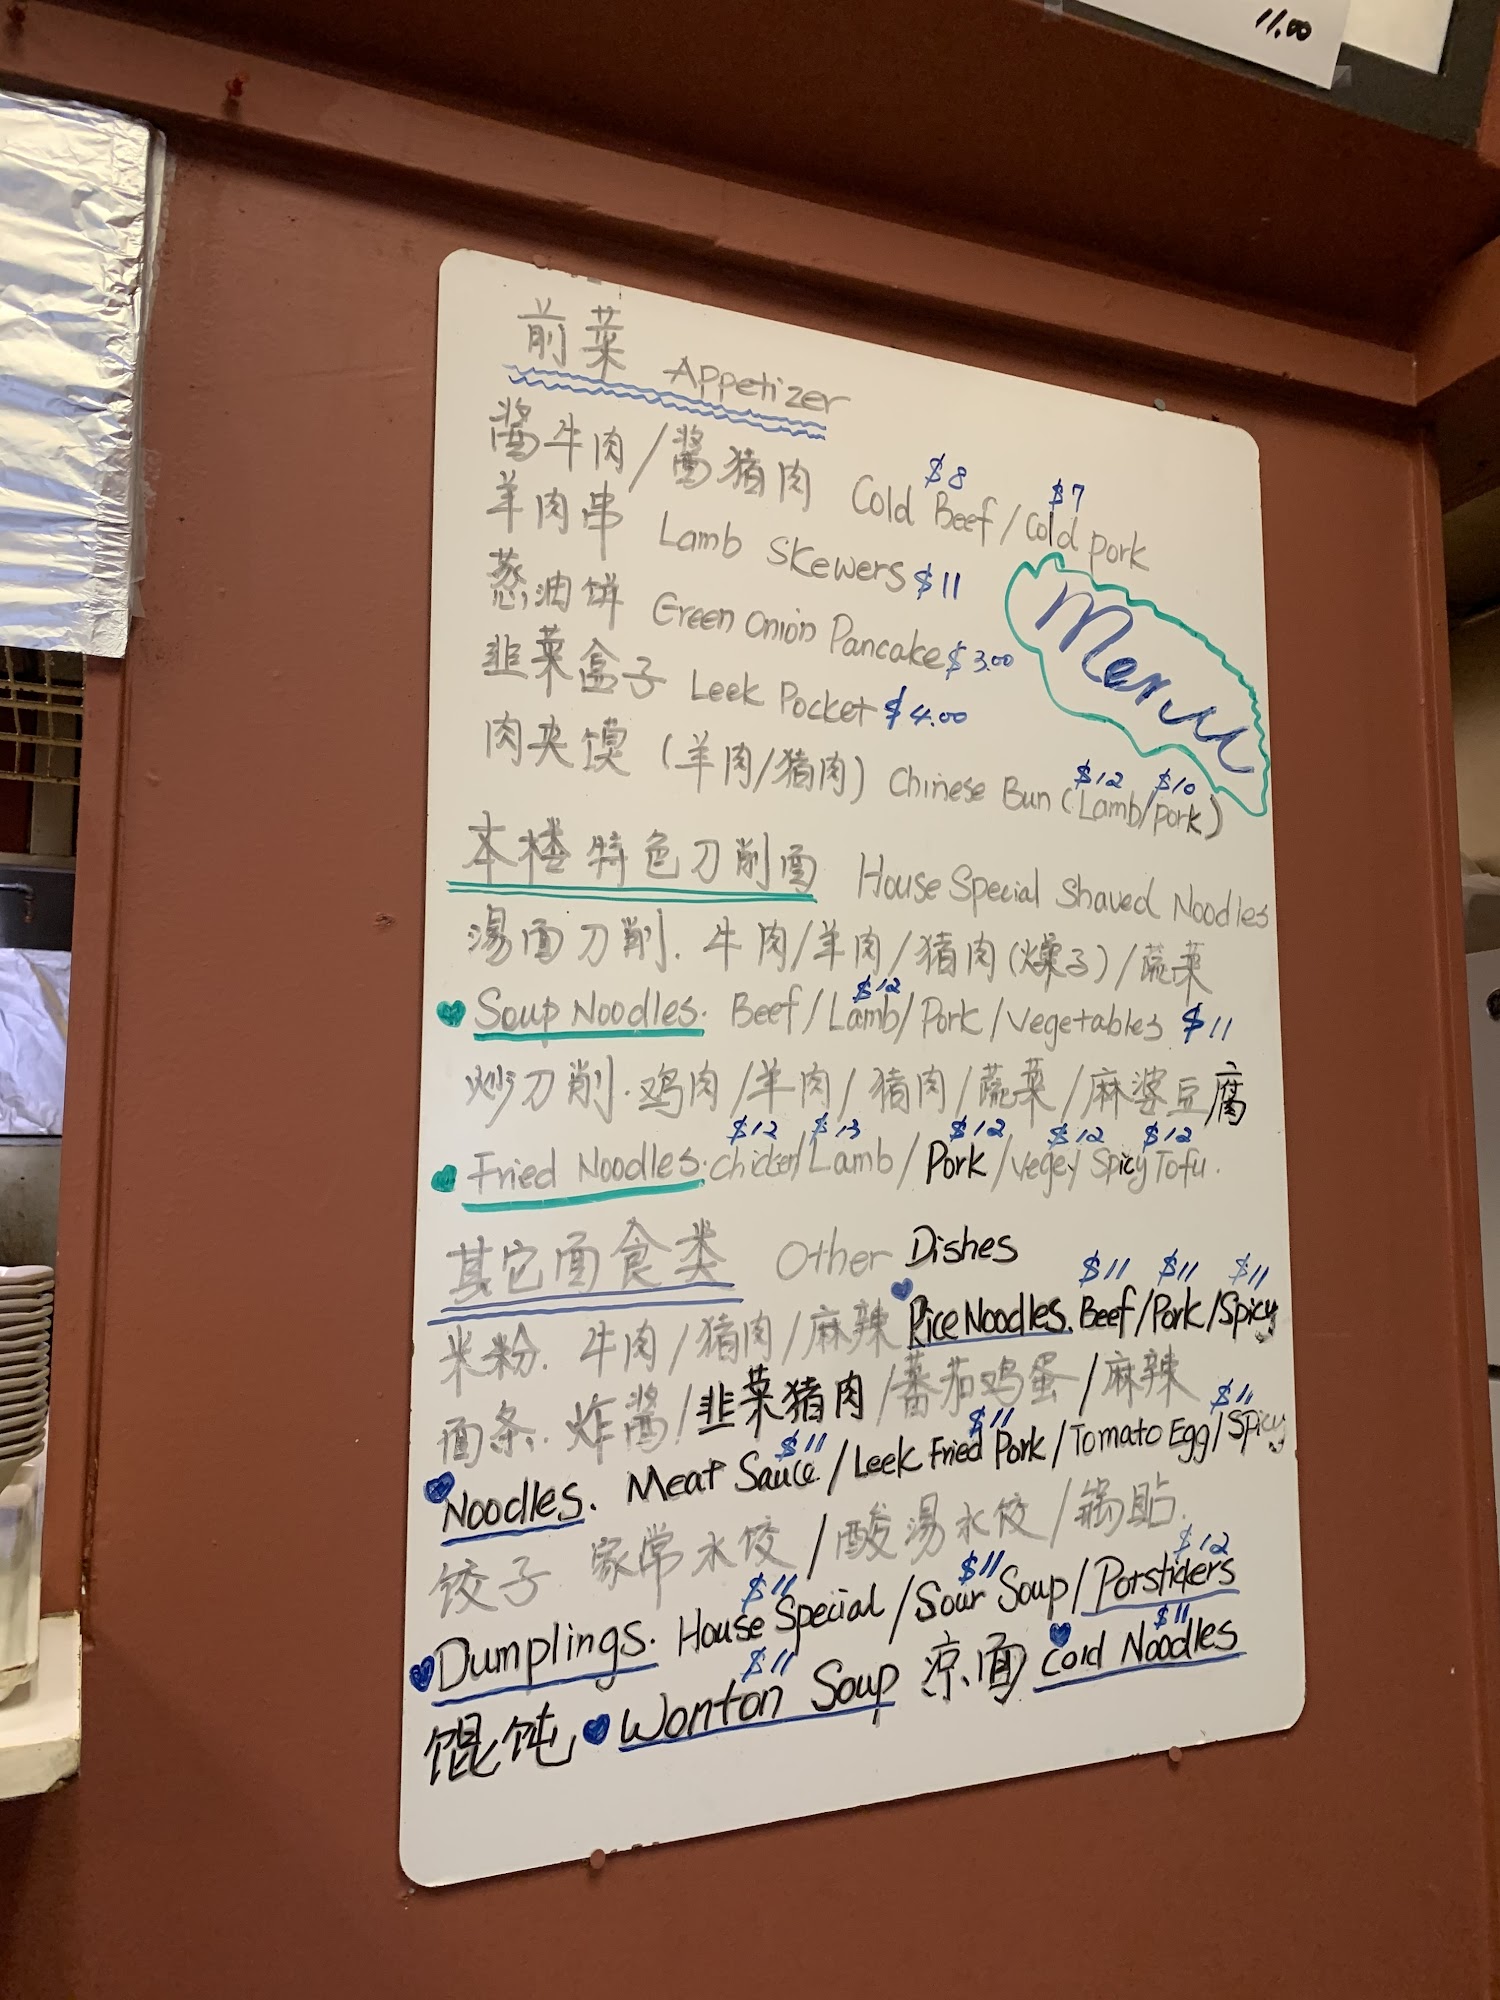 11.00
前菜 Appetizer
酱牛肉/酱猪肉 Cold Beef/Cold pork $8 $7
羊肉串 Lamb Skewers $11
葱油饼 Green Onion Pancake $3.00
韭菜盒子 Leek Pocket $4.00
Menu
肉夹馍 (羊肉/猪肉) Chinese Bun (Lamb/pork) $12 $10
本楼特色刀削面 House Special Shaved Noodles
湯面刀削. 牛肉/羊肉/猪肉(燥子)/蔬菜
Soup Noodles. Beef/Lamb/Pork/Vegetables $11 $12
炒刀削.鸡肉/羊肉/猪肉/蔬菜/麻婆豆腐
$12 $13 $12 $12 $12
Fried Noodles. Chicken/Lamb/Pork/Vege/Spicy Tofu.
其它面食类 Other Dishes
$11 $11 $11
米粉. 牛肉/猪肉/麻辣 Rice Noodles. Beef/Pork/Spicy
面条. 炸酱/韭菜猪肉/蕃茄鸡蛋/麻辣
$11 $11 $11
Noodles. Meat Sauce/Leek Fried Pork/Tomato Egg/Spicy
饺子 家常水饺/酸湯水饺/锅貼.
$11 $11 $12
Dumplings. House Special/Sour Soup/Potstickers
$11 $11
馄饨 Wonton Soup 凉面 Cold Noodles